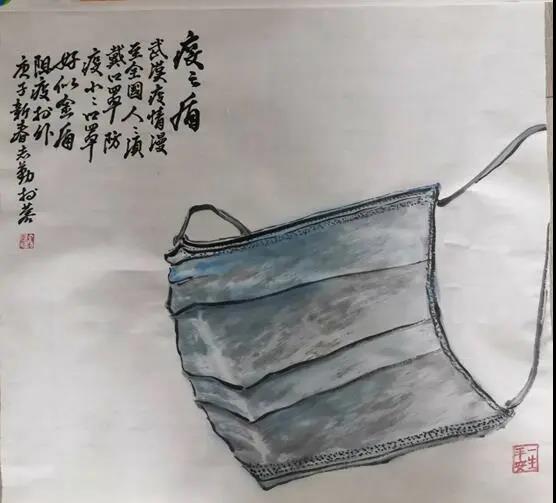 疫之盾
武漢疫情漫
至全國人々須
戴口罩防
疫小々口罩
好似金盾
阻疫於外
庚子新春志勤於蓉
一生平安